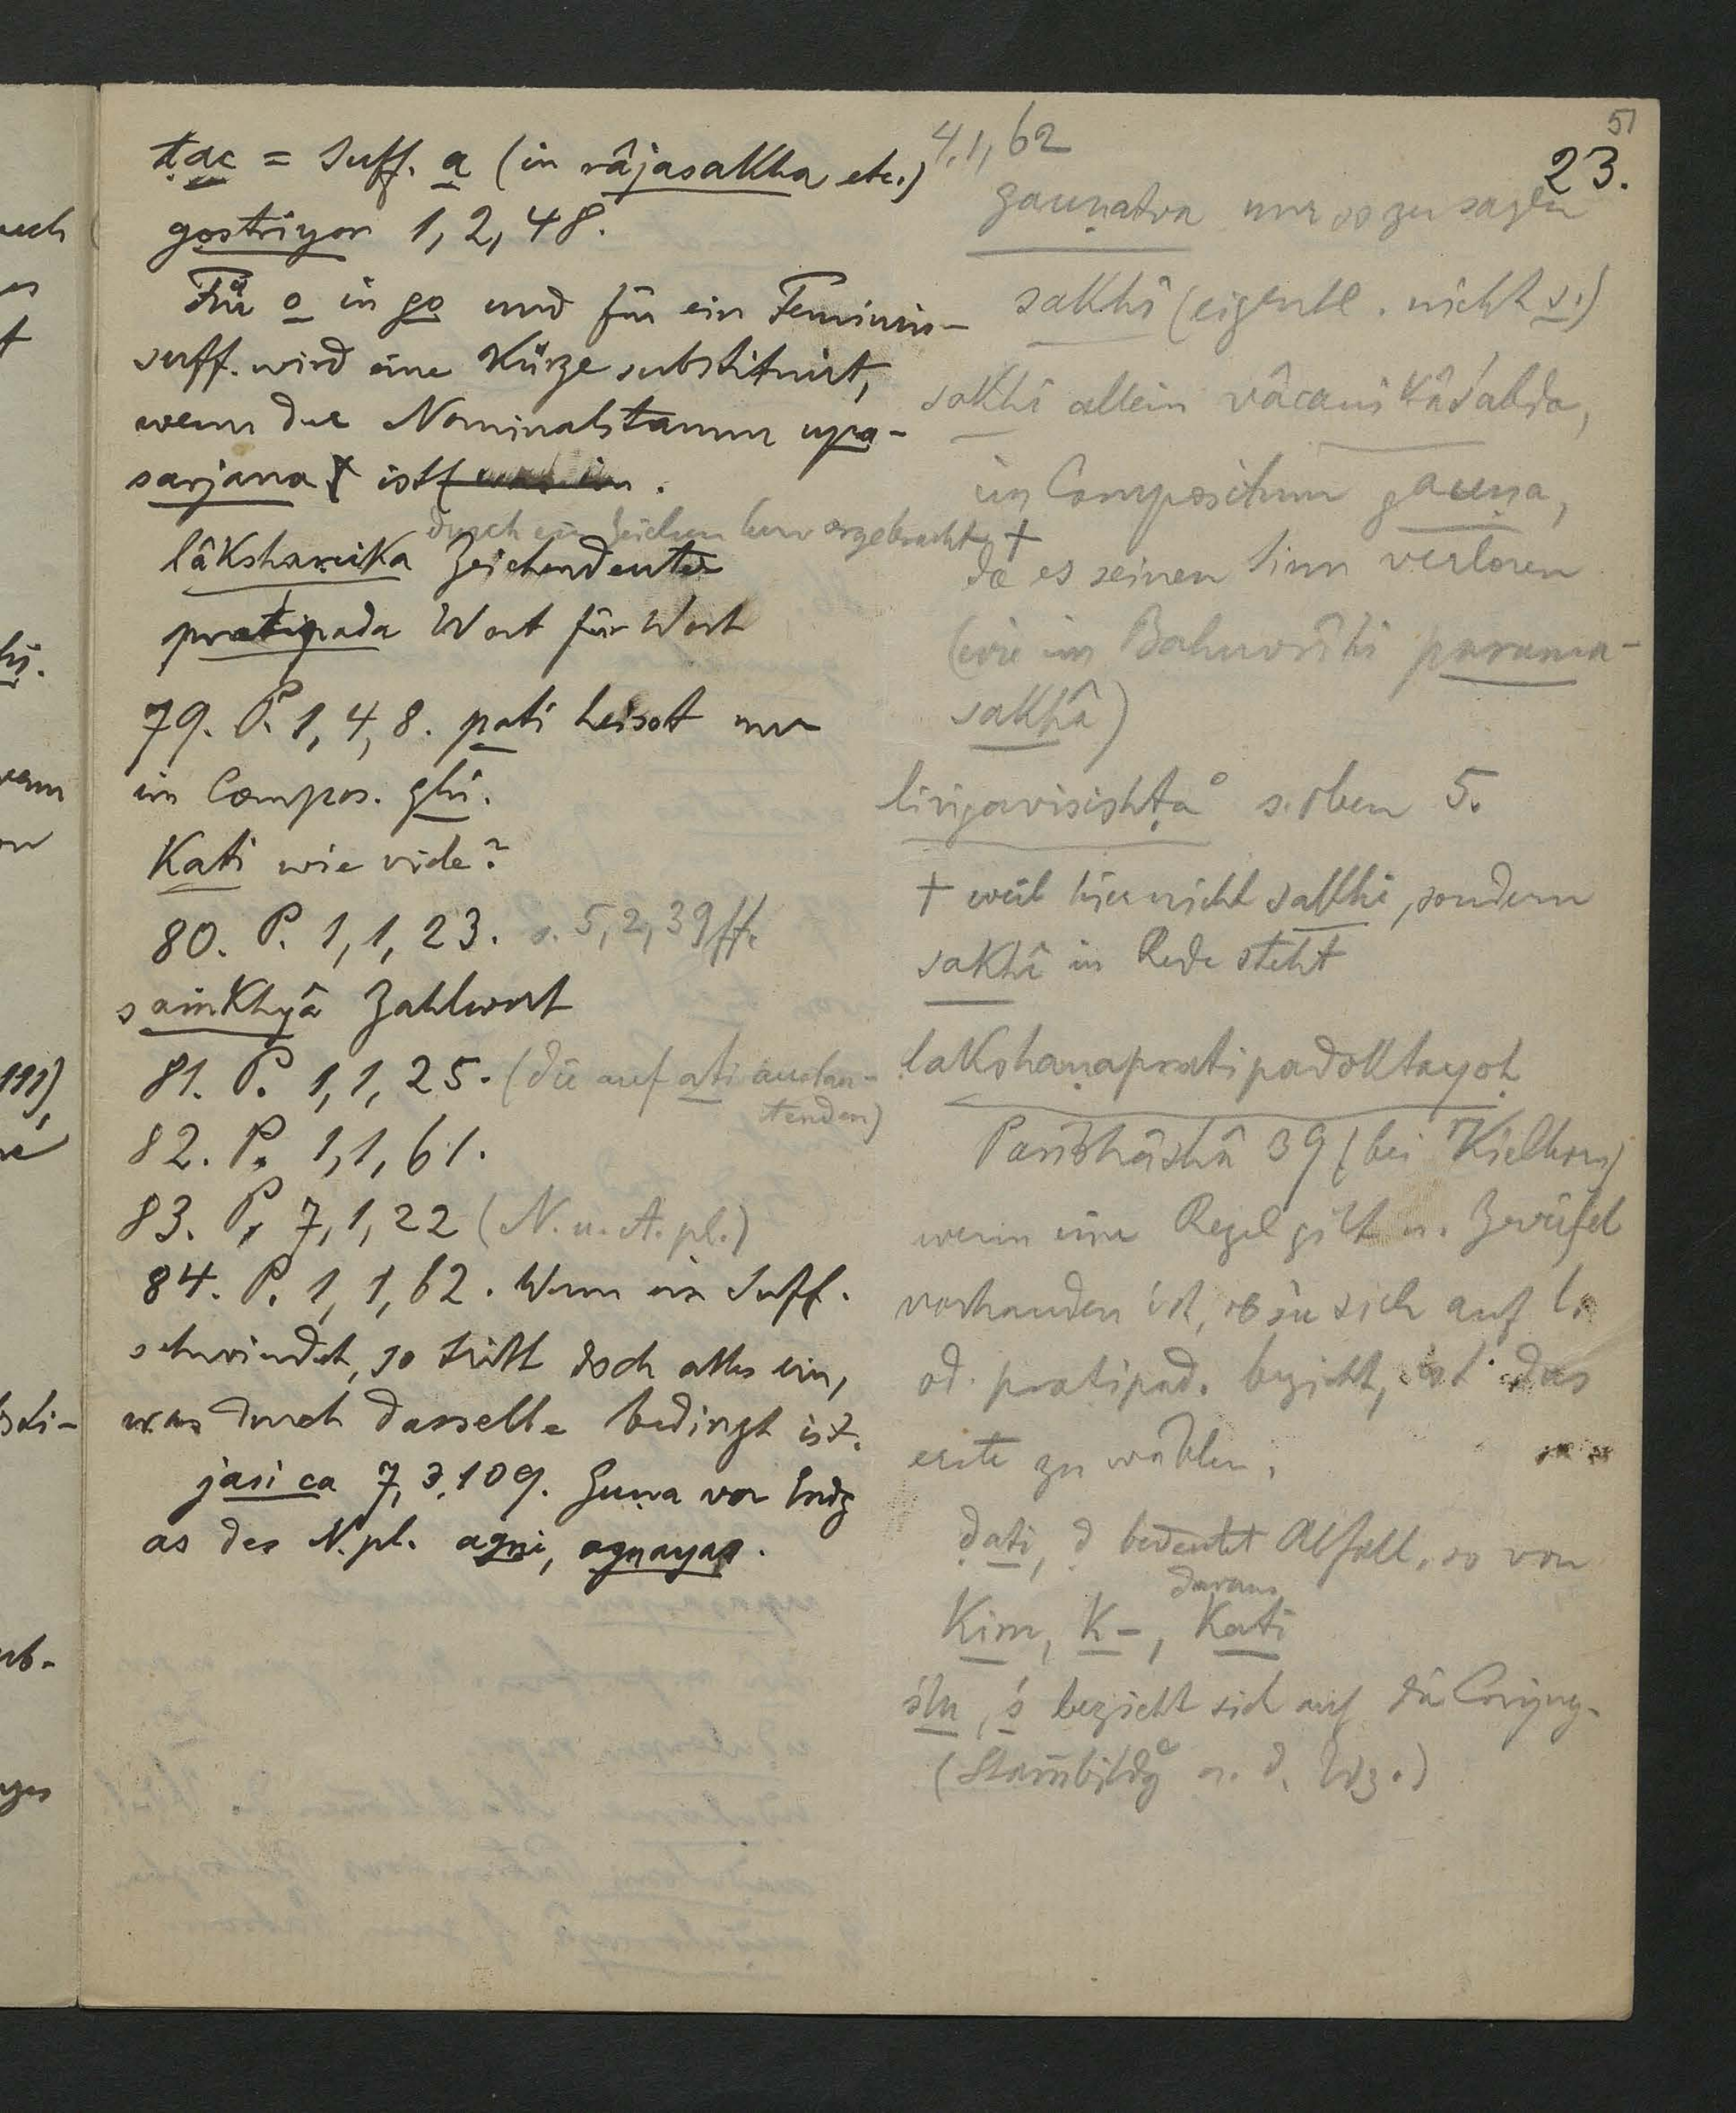 51
23.
ṭac = Suff. a (in râjasakha etc.)
gostriyor 1, 2, 48.
Für o in go und für ein Feminin-
suff. wird eine Kürze substituirt,
wenn der Nominalstamm upa-
sarjana ist.
durch ein Zeichen hervorgebracht
lâkshaṇika Zeichendeuter
pratipada Wort für Wort
79. P. 1, 4, 8. pati heisst nur
im Compos. ghi.
Kati wie viele?
80. P. 1, 1, 23. s. 5, 2, 39 ff.
saṁkhyâ Zahlwort
81. P. 1, 1, 25. (die auf ati auslau-
tenden)
82. P. 1, 1, 61.
83. P. 7, 1, 22 (N. u. A. pl.)
84. P. 1, 1, 62. Wenn ein Suff.
schwindet, so tritt doch alles ein,
was durch dasselbe bedingt ist.
jasi ca 7, 3, 109. Guṇa vor Endg
as des N. pl. agni, agnayas.
4, 1, 62
gauṇatva nur so zu sagen
sakhî (eigentl. nicht s.)
sakhî allein vâcanikaśabda,
im Compositum gauṇa,
† da es seinen Sinn verloren
(wie im Bahuvrîhi parama-
sakhâ)
liṅgaviśishṭa° s. oben 5.
† weil hier nicht sakhi, sondern
sakhî in Rede steht
lakshaṇapratipadoktayoḥ
Paribhâshâ 39 (bei Kielhorn)
wenn eine Regel gilt u. Zweifel
vorhanden ist, ob sie sich auf l.
od. pratipad. bezieht, ist das
erste zu wählen.
ḍati, ḍ bedeutet Abfall, so von
daraus
Kim, K-, Kati
ślu, ś bezieht sich auf die Conjug.
(Stam̄bildg a. d. Wz.)